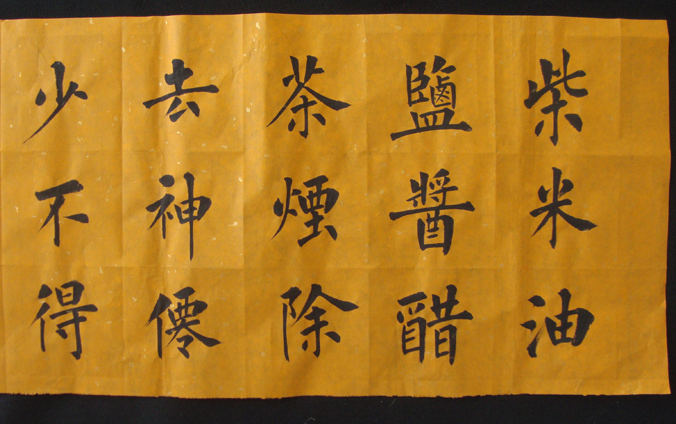 柴米油
鹽醬醋
茶煙除
去神僊
少不得